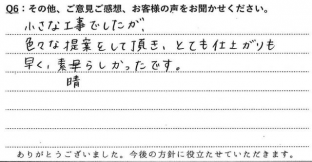 Q6：その他、ご意見ご感想、お客様の声をお聞かせください。
小さな工事でしたが、
色々な提案をして頂き、とても仕上がりも
早く、素晴らしかったです。
晴
ありがとうございました。今後の方針に役立たせていただきます。